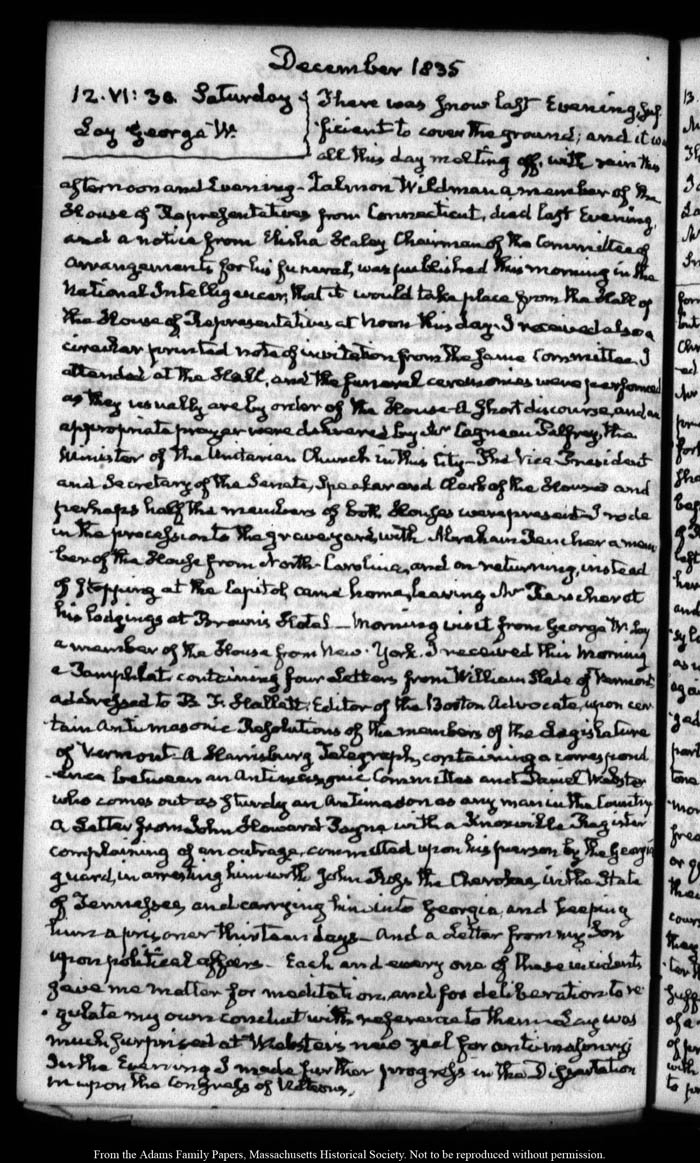 December 1835
12. VI: 30. Saturday
Lay George W.
There was snow last Evening, suf-
ficient to cover the ground; and it was
all this day melting off, with rain this
afternoon and Evening. Zalmon Wildman a member of the
House of Representatives from Connecticut, died last Evening,
and a notice from Elisha Haley Chairman of the Committee of
Arrangements for his funeral, was published this morning in the
National Intelligencer, that it would take place from the Hall of
the House of Representatives at Noon this day. I received also a
circular printed note of invitation from the same Committee. I
attended at the Hall, and the funeral ceremonies were performed
as they usually are by order of the House. A short discourse, and an
appropriate prayer were delivered by Mr Palfrey, the
Minister of the Unitarian Church in this City. The Vice President
and Secretary of the Senate, Speaker and Clerk of the House and
perhaps half the members of both Houses were present. I rode
in the procession to the graveyard, with Abraham Rencher a mem-
ber of the House from North-Carolina, and on returning, instead
of stopping at the Capitol, came home, leaving Mr Rencher at
his lodgings at Brown's Hotel. Morning visit from George W. Lay
a member of the House from New-York. I received this Morning
a Pamphlet, containing four Letters from William Slade of Vermont
addressed to B. F. Hallett, Editor of the Boston Advocate, upon cer-
tain Antimasonic Resolutions of the members of the Legislature
of Vermont. A Harrisburg Telegraph, containing a correspond-
ence between an Antimasonic Committee and Daniel Webster
who comes out as sturdy an Antimason as any man in the Country
A Letter from John Howard Payne with a Knoxville Register
complaining of an outrage, committed upon his person by the Georgia
guard, in arresting him with John Ross the Cherokee, in the State
of Tennessee, and carrying him into Georgia, and keeping
him a prisoner thirteen days. And a Letter from my Son
upon political affairs. Each and every one of these incidents
gave me matter for meditation, and for deliberation to re-
gulate my own conduct with reference to them. Lay was
much surprised at Webster's new zeal for antimasonry
In the Evening I made further progress in the Dissertation
upon the Congress of Nations.
From the Adams Family Papers, Massachusetts Historical Society. Not to be reproduced without permission.